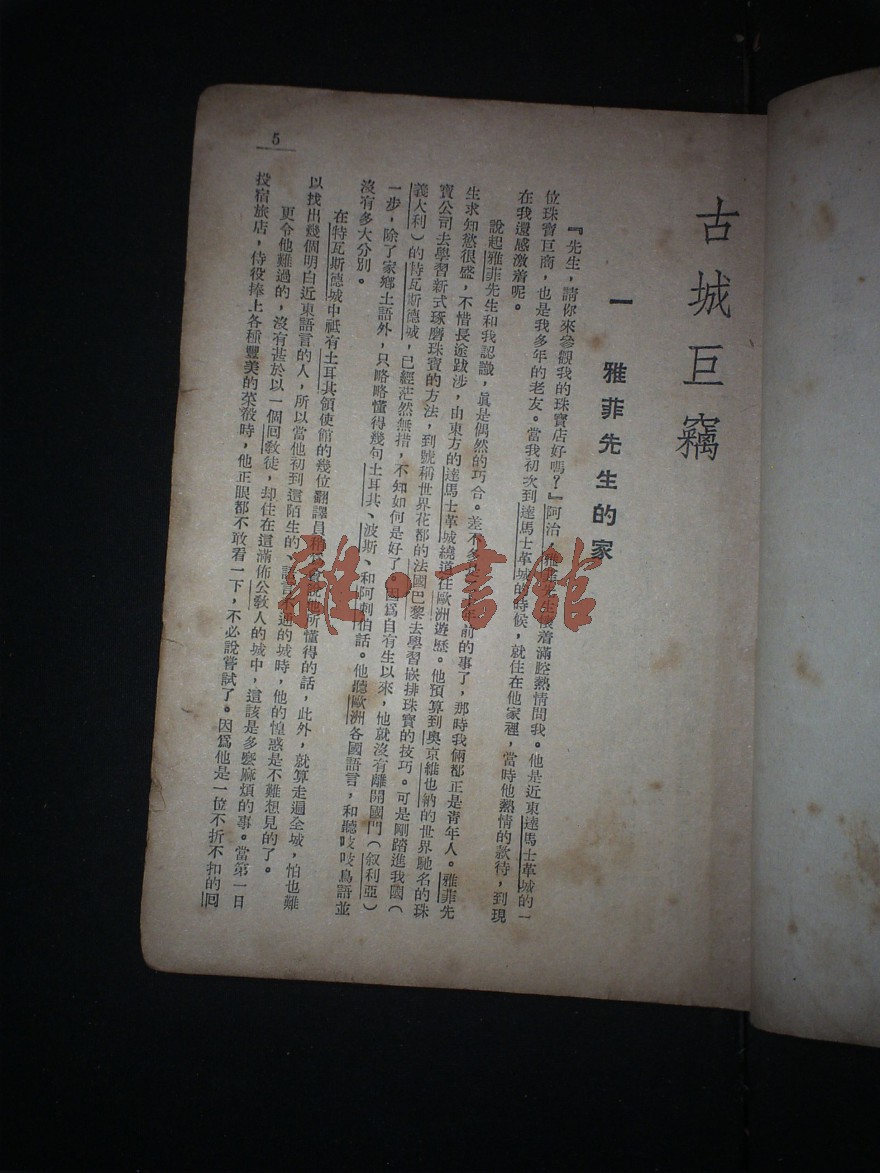 古城巨竊
一　雅菲先生的家
『先生，請你來參觀我的珠寶店好嗎？』阿治・雅菲先生懷着滿腔熱情問我。他是近東達馬士革城的一
位珠寶巨商，也是我多年的老友。當我初次到達馬士革城的時候，就住在他家裡，當時他熱情的款待，到現
在我還感激着呢。
說起雅菲先生和我認識，眞是偶然的巧合。差不多是年前的事了，那時我倆都正是靑年人。雅菲先
生求知慾很盛，不惜長途跋涉，由東方的達馬士革城繞道往歐洲遊歷。他預算到奧京維也納的世界馳名的珠
寶公司去學習新式琢磨珠寶的方法，到號稱世界花都的法國巴黎去學習嵌排珠寶的技巧。可是剛踏進我國（
義大利）的特瓦斯德城，已經茫然無措，不知如何是好了。因爲自有生以來，他就沒有離開國門（叙利亞）
一步，除了家鄉土語外，只略略懂得幾句土耳其、波斯、和阿剌伯話。他聽歐洲各國語言，和聽吱吱鳥語並
沒有多大分別。
在特瓦斯德城中祇有土耳其領使館的幾位翻譯員會說他所懂得的話，此外，就算走遍全城，怕也難
以找出幾個明白近東語言的人，所以當他初到這陌生的、語言不通的城時，他的惶惑是不難想見的了。
更令他難過的，沒有甚於以一個回敎徒，却住在這滿佈公敎人的城中，這該是多麼麻煩的事。當第一日
投宿旅店，侍役捧上各種豐美的菜殽時，他正眼都不敢看一下，不必說嘗試了。因爲他是一位不折不扣的回
5
雜·書館